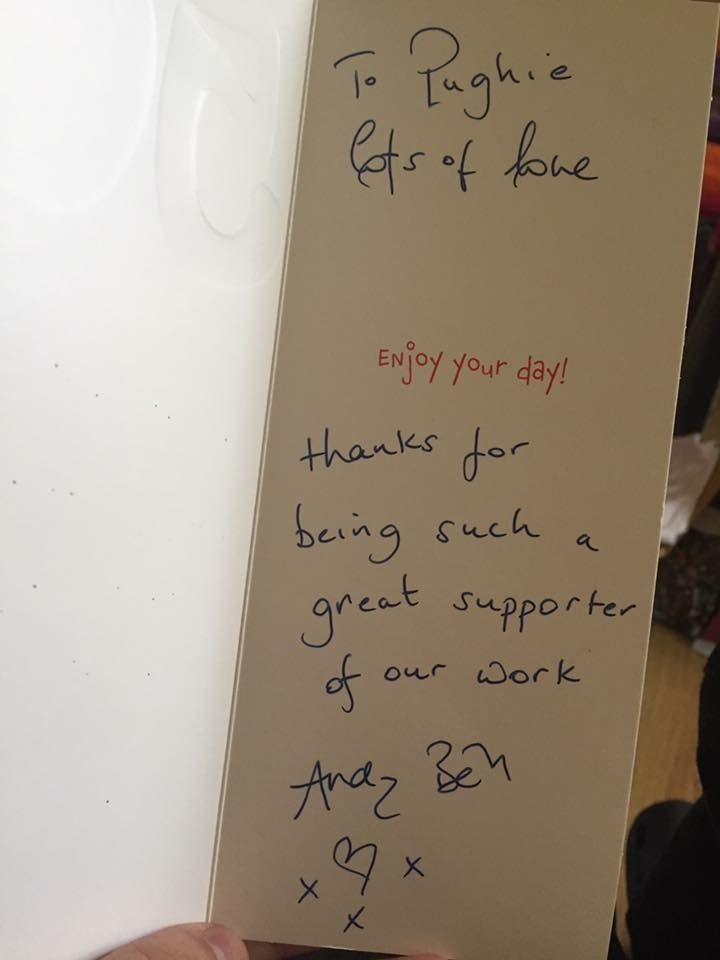 To Pughie
lots of love
ENjoy your day!
thanks for
being such a
great supporter
of our work
Andy Ben
x x
x